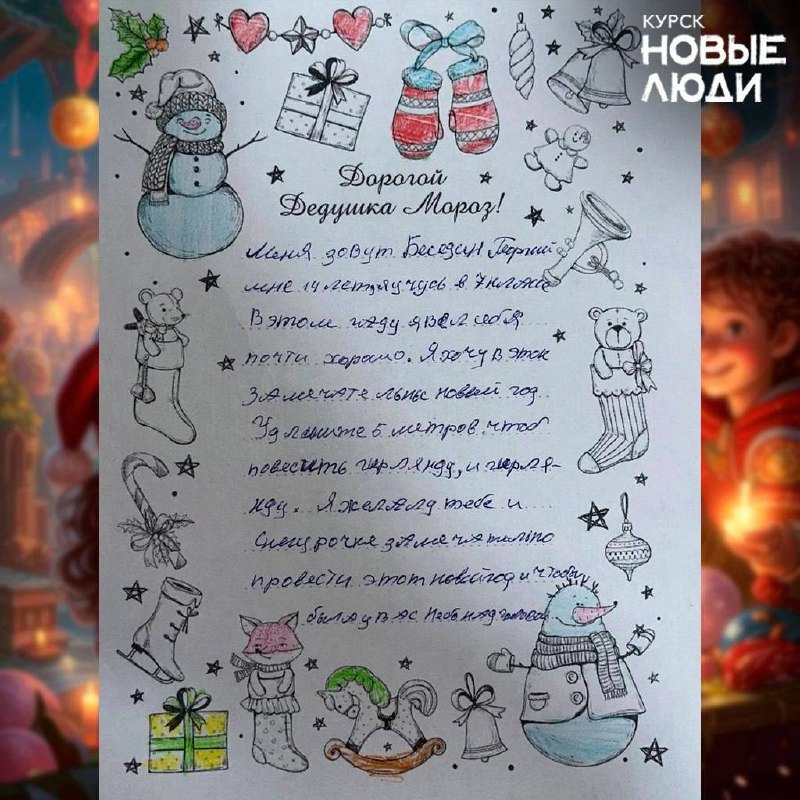 КУРСК
НОВЫЕ
ЛЮДИ
Дорогой
Дедушка Мороз!
Меня зовут Беседин Георгий
мне 14 лет, я учусь в 7 классе
В этом году я вел себя
почти хорошо. Я хочу в этот
замечательный новый год
Удлините 5 метров. чтоб
повесить гирлянду, и гирля-
нду. Я желаю тебе и
Снегурочке замечательно
провести этот новый год и чтобы
была у вас